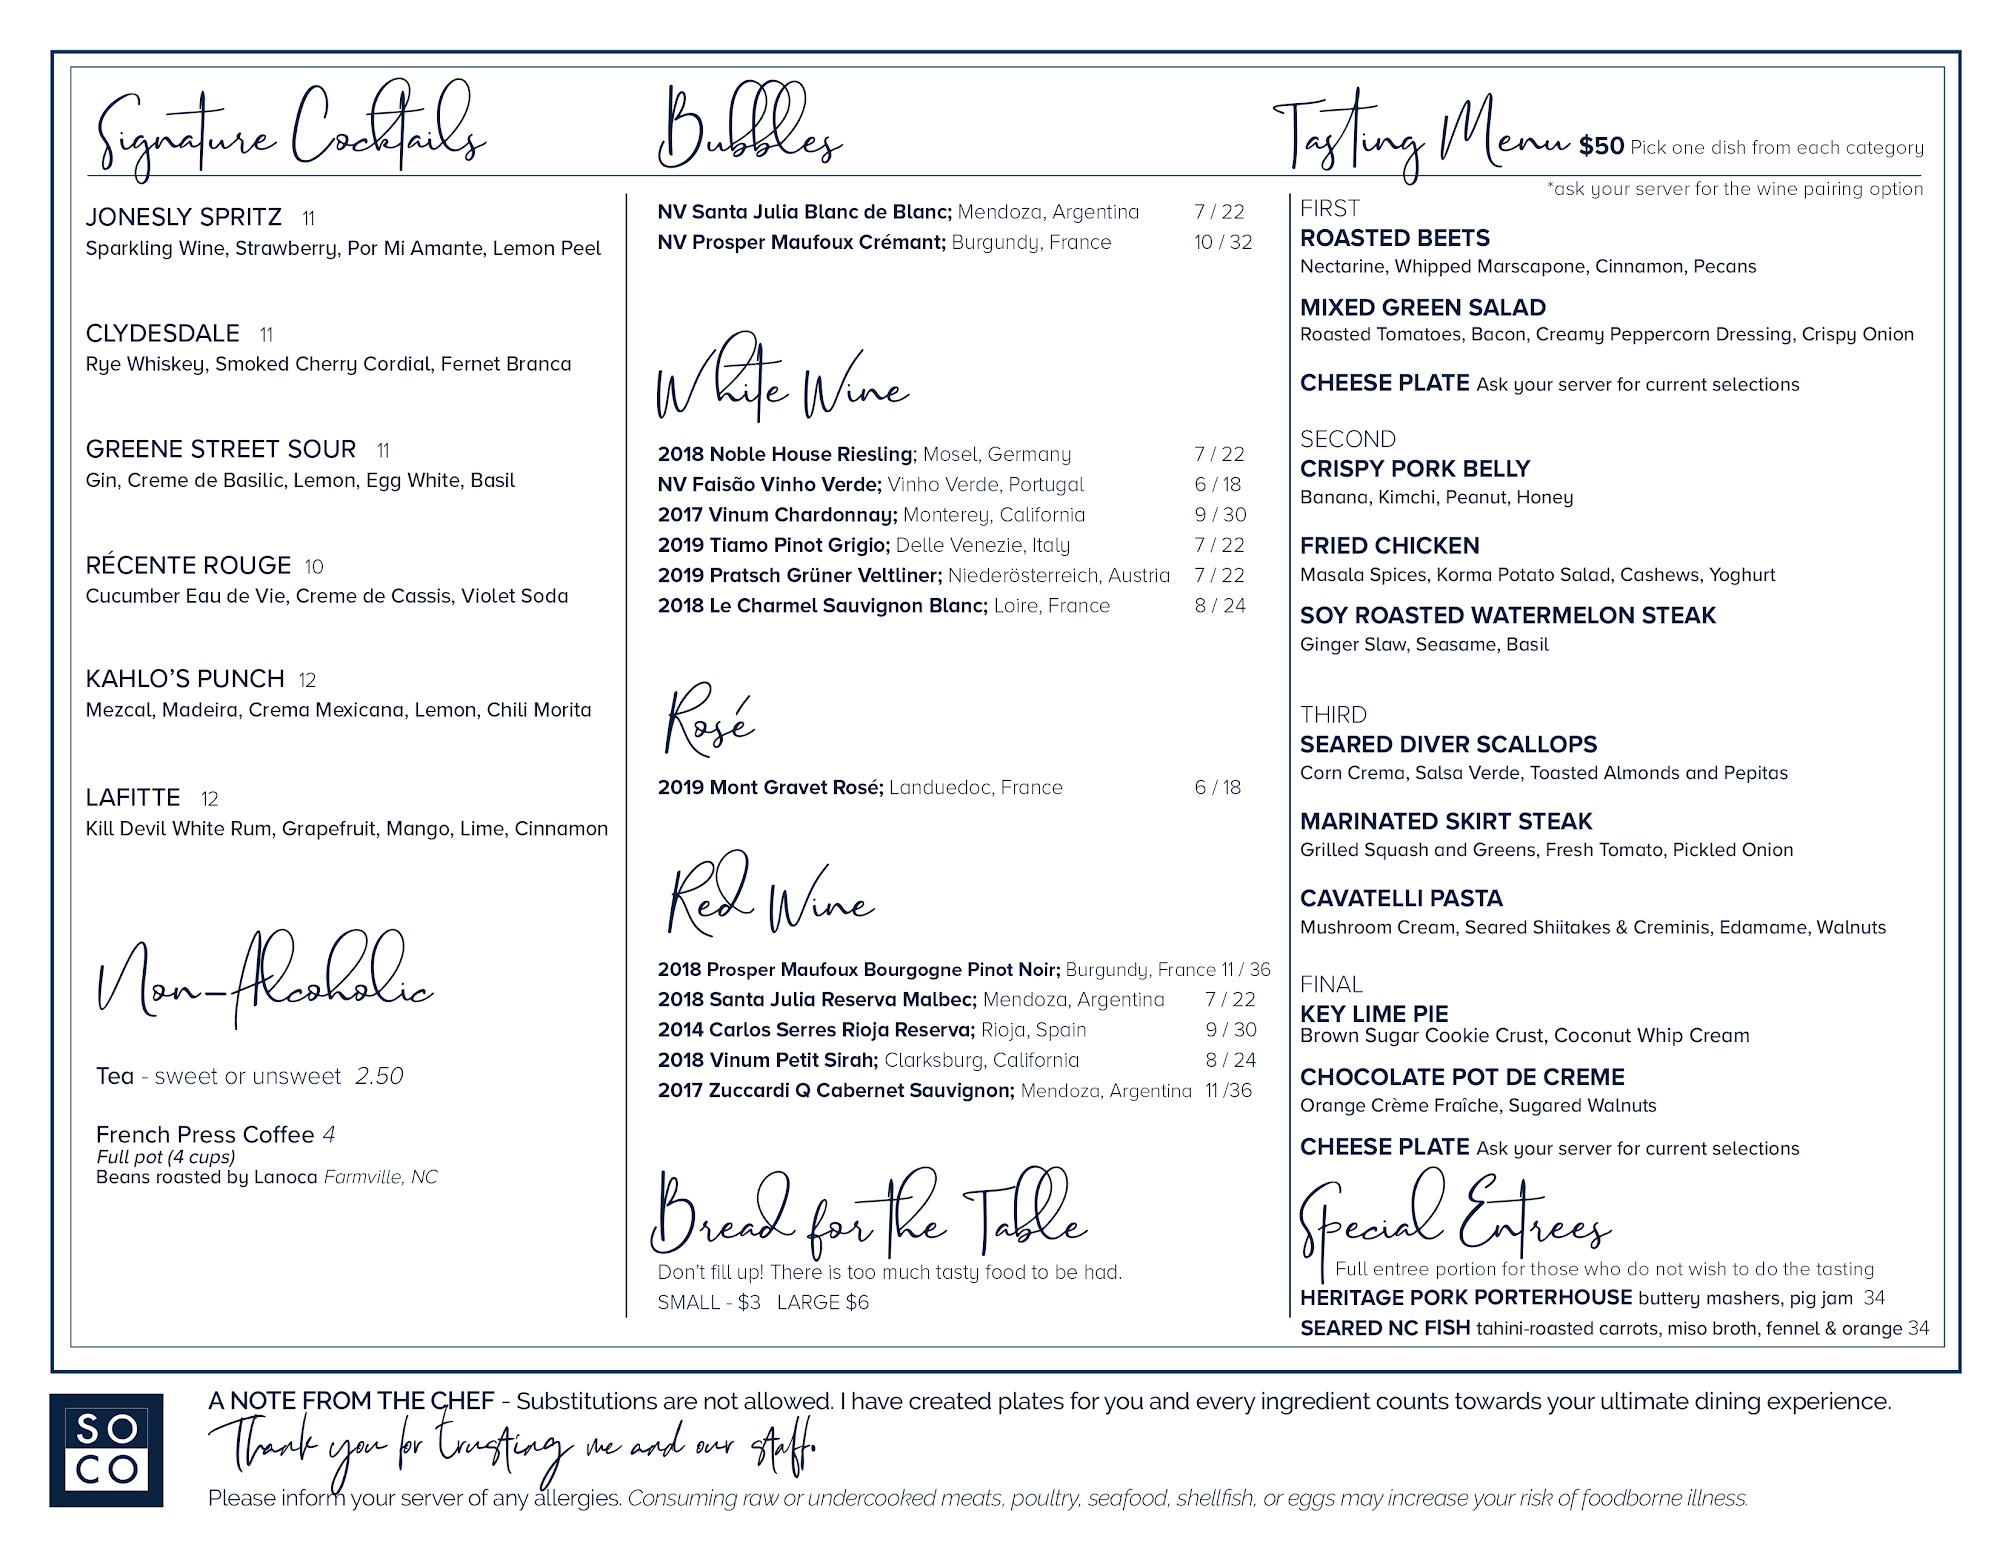 Signature Cocktails
JONESLY SPRITZ 11
Sparkling Wine, Strawberry, Por Mi Amante, Lemon Peel
CLYDESDALE 11
Rye Whiskey, Smoked Cherry Cordial, Fernet Branca
GREENE STREET SOUR 11
Gin, Creme de Basilic, Lemon, Egg White, Basil
RÉCENTE ROUGE 10
Cucumber Eau de Vie, Creme de Cassis, Violet Soda
KAHLO'S PUNCH 12
Mezcal, Madeira, Crema Mexicana, Lemon, Chili Morita
LAFITTE 12
Kill Devil White Rum, Grapefruit, Mango, Lime, Cinnamon
Non-Alcoholic
Tea - sweet or unsweet 2.50
French Press Coffee 4
Full pot (4 cups)
Beans roasted by Lanoca Farmville, NC
Bubbles
NV Santa Julia Blanc de Blanc; Mendoza, Argentina 7 / 22
NV Prosper Maufoux Crémant; Burgundy, France 10 / 32
White Wine
2018 Noble House Riesling; Mosel, Germany 7 / 22
NV Faisão Vinho Verde; Vinho Verde, Portugal 6 / 18
2017 Vinum Chardonnay; Monterey, California 9 / 30
2019 Tiamo Pinot Grigio; Delle Venezie, Italy 7 / 22
2019 Pratsch Grüner Veltliner; Niederösterreich, Austria 7 / 22
2018 Le Charmel Sauvignon Blanc; Loire, France 8 / 24
Rosé
2019 Mont Gravet Rosé; Landuedoc, France 6 / 18
Red Wine
2018 Prosper Maufoux Bourgogne Pinot Noir; Burgundy, France 11 / 36
2018 Santa Julia Reserva Malbec; Mendoza, Argentina 7 / 22
2014 Carlos Serres Rioja Reserva; Rioja, Spain 9 / 30
2018 Vinum Petit Sirah; Clarksburg, California 8 / 24
2017 Zuccardi Q Cabernet Sauvignon; Mendoza, Argentina 11 /36
Bread for the Table
Don't fill up! There is too much tasty food to be had.
SMALL - $3 LARGE $6
Tasting Menu $50 Pick one dish from each category
*ask your server for the wine pairing option
FIRST
ROASTED BEETS
Nectarine, Whipped Marscapone, Cinnamon, Pecans
MIXED GREEN SALAD
Roasted Tomatoes, Bacon, Creamy Peppercorn Dressing, Crispy Onion
CHEESE PLATE Ask your server for current selections
SECOND
CRISPY PORK BELLY
Banana, Kimchi, Peanut, Honey
FRIED CHICKEN
Masala Spices, Korma Potato Salad, Cashews, Yoghurt
SOY ROASTED WATERMELON STEAK
Ginger Slaw, Seasame, Basil
THIRD
SEARED DIVER SCALLOPS
Corn Crema, Salsa Verde, Toasted Almonds and Pepitas
MARINATED SKIRT STEAK
Grilled Squash and Greens, Fresh Tomato, Pickled Onion
CAVATELLI PASTA
Mushroom Cream, Seared Shiitakes & Creminis, Edamame, Walnuts
FINAL
KEY LIME PIE
Brown Sugar Cookie Crust, Coconut Whip Cream
CHOCOLATE POT DE CREME
Orange Crème Fraîche, Sugared Walnuts
CHEESE PLATE Ask your server for current selections
Special Entrees
Full entree portion for those who do not wish to do the tasting
HERITAGE PORK PORTERHOUSE buttery mashers, pig jam 34
SEARED NC FISH tahini-roasted carrots, miso broth, fennel & orange 34
SO
CO
A NOTE FROM THE CHEF - Substitutions are not allowed. I have created plates for you and every ingredient counts towards your ultimate dining experience.
Thank you for trusting me and our staff.
Please inform your server of any allergies. Consuming raw or undercooked meats, poultry, seafood, shellfish, or eggs may increase your risk of foodborne illness.